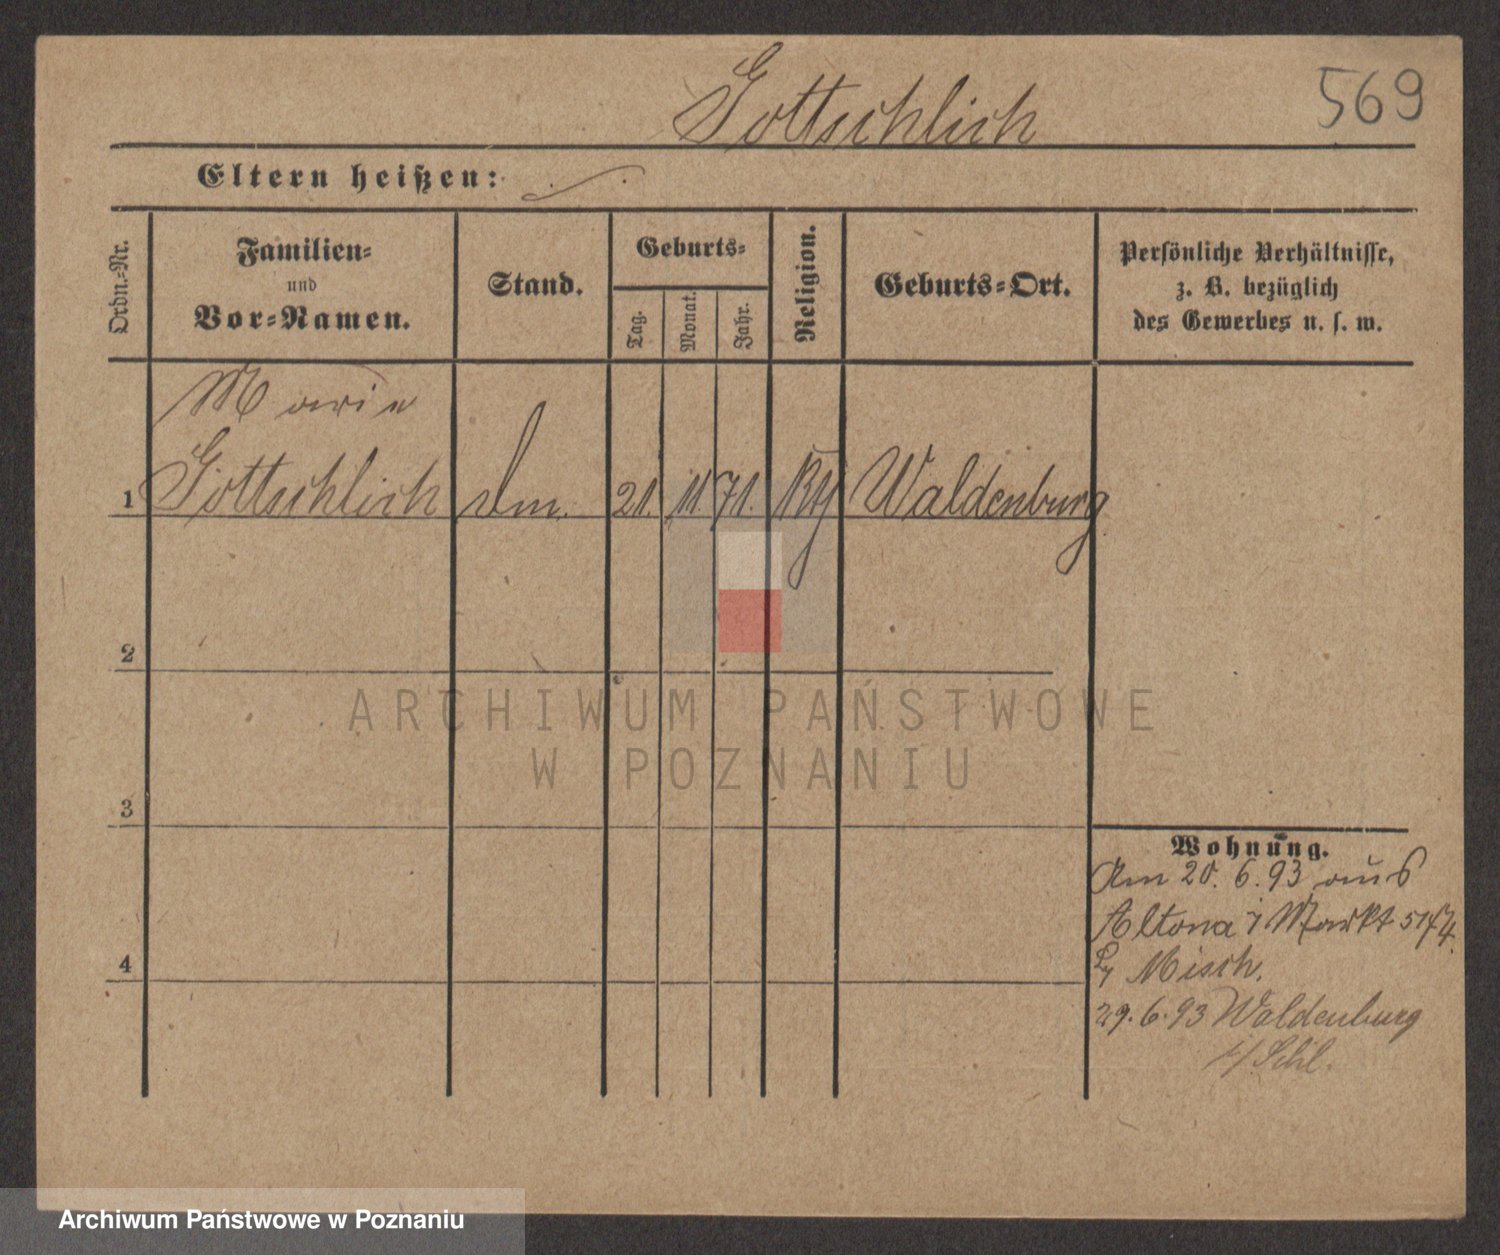 Gottschlich
569
Eltern heißen:
Ordn.-Nr.
Familien-
und
Vor-Namen.
Stand.
Geburts-
Tag.
Monat.
Jahr.
Religion.
Geburts-Ort.
Persönliche Verhältnisse,
z. B. bezüglich
des Gewerbes u. s. w.
Marie
1 Gottschlich 21. 11. 71. Waldenburg
2
3
4
Wohnung.
Am 20. 6. 93 aus
Altona Markt
Misch.
29. 6. 93 Waldenburg
i/Schl.
ARCHIWUM PAŃSTWOWE
W POZNANIU
Archiwum Państwowe w Poznaniu